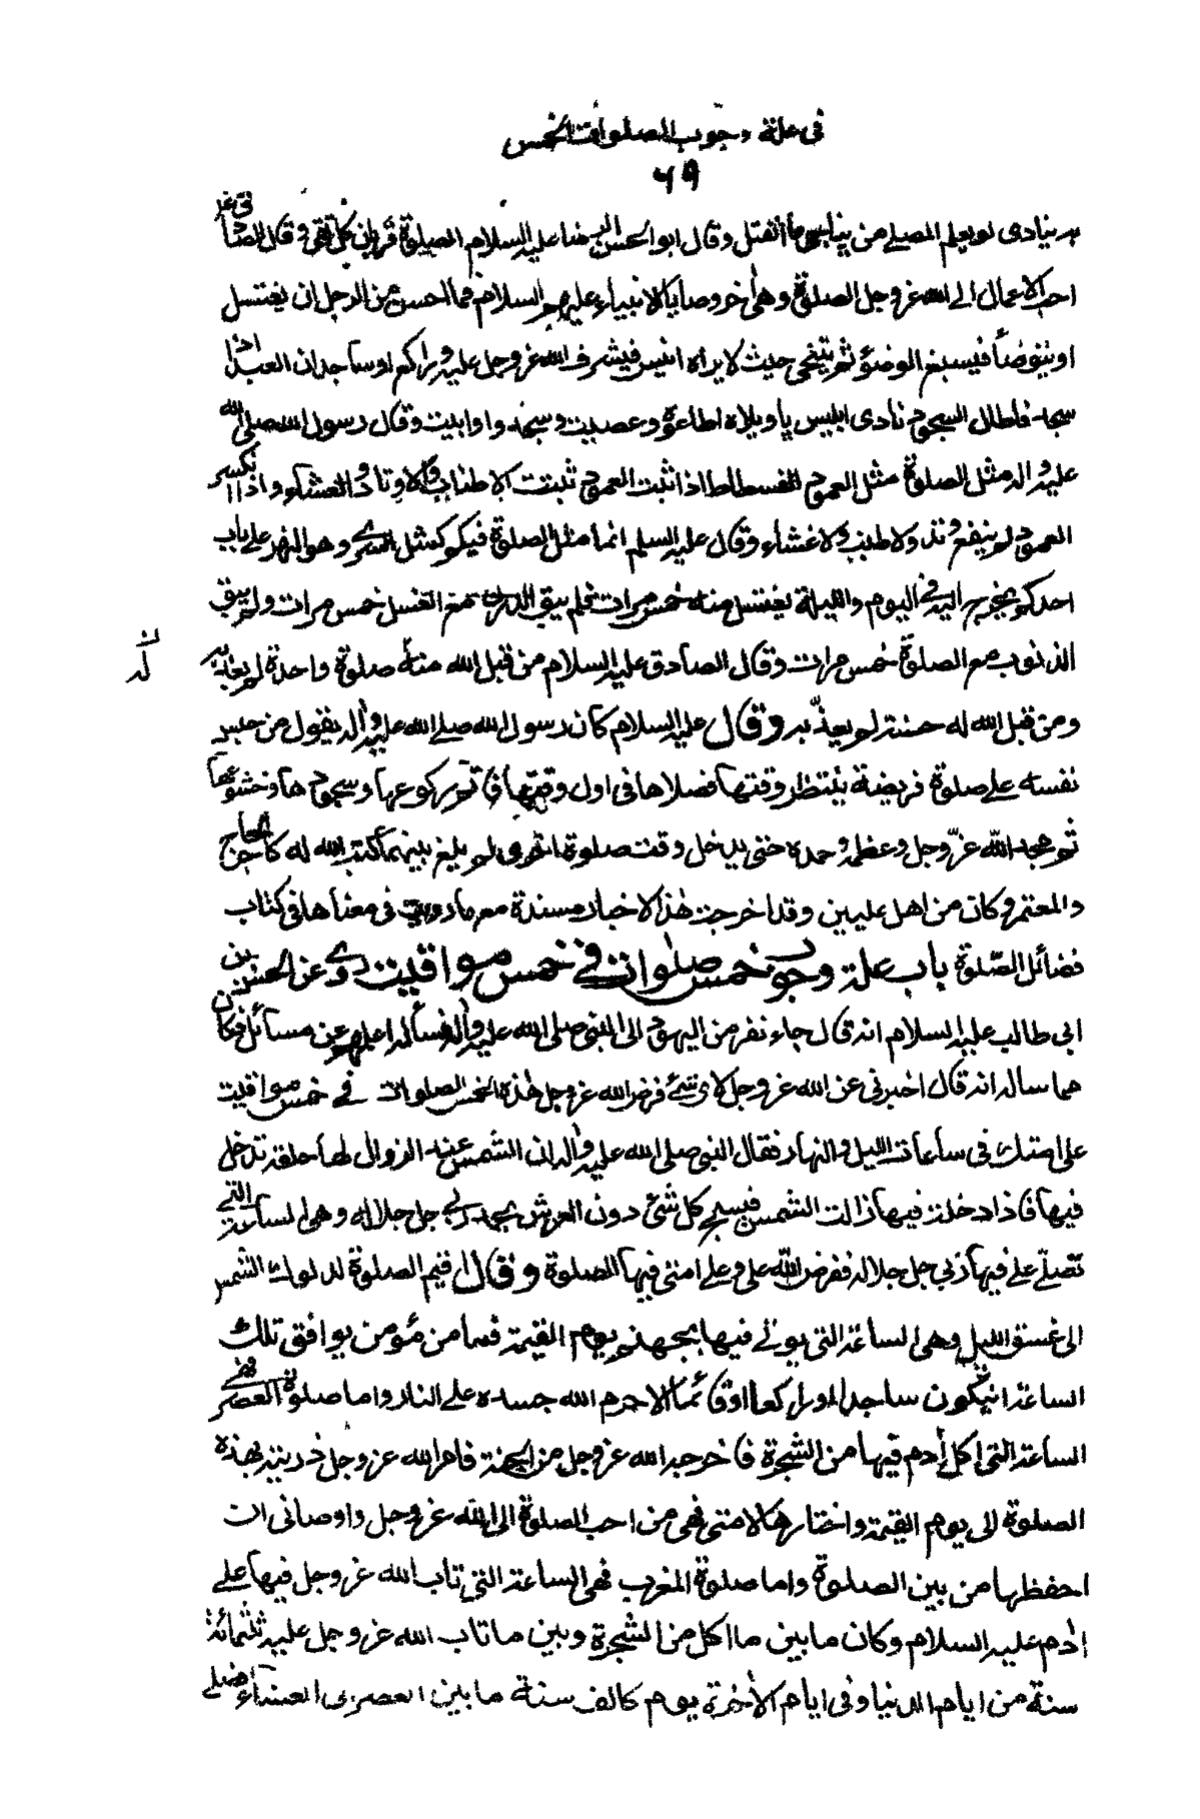 فى علة وجوب الصلوات الخمس
٦٩
به ينادى لو يعلم المصلے من يناجى ما انفتل وقال ابو الحسن الرضا عليه السلام الصلوة قربان كل تقى وقال الصادق ع
احب الاعمال الے الله عز وجل الصلوة وهى اخر وصايا الانبياء عليهم السلام فما احسن من الرجل ان يغتسل
او يتوضأ فيسبغ الوضوء ثم يتنحى حيث لا يراه انيس فيشرف الله عز وجل عليه وراكع او ساجد ان العبد اذا
سجد فاطال السجود نادى ابليس يا ويلاه اطاعوا وعصيت وسجدوا وابيت وقال رسول الله صلى الله
عليه واله مثل الصلوة مثل العمود الفسطاط اذا ثبت العمود ثبتت الاطناب والاوتاد والغشاء واذا انكسر
العمود لم ينفع وتد ولا طنب ولا غشاء وقال عليه السلم انما مثل الصلوة فيكم كمثل السرے وهو النهر على باب
احدكم يخرج اليه فى اليوم والليلة يغتسل منه خمس مرات فلم يبق الدرن مع الغسل خمس مرات ولم يبق
الذنوب مع الصلوة خمس مرات وقال الصادق عليه السلام من قبل الله منه صلوة واحدة لم يعذبه
ومن قبل الله له حسنة لم يعذبه وقال عليه السلام كان رسول الله صلے الله عليه واله يقول من حبس
نفسه على صلوة فريضة ينتظر وقتها فصلاها فى اول وقتها فاتم ركوعها وسجودها وخشوعها
ثم مجد الله عز وجل وعظمه وحمده حتى يدخل وقت صلوة اخرى لم يلغ بينهما كتب الله له كاجر الحاج
والمعتمر وكان من اهل عليين وقد اخرجت هذه الاخبار مسندة مع ما رويت فى معناها فى كتاب
فضائل الصلوة باب علة وجوب خمس صلوات فے خمس مواقيت روے عن الحسن بن
ابى طالب عليه السلام انه قال جاء نفر من اليهود الى النبى صلى الله عليه واله فسأله اعلمهم عن مسائل فكان
مما ساله انه قال اخبرنى عن الله عز وجل لاى شئ فرض الله عز وجل هذه الخمس الصلوات فے خمس مواقيت
على امتك فى ساعات الليل والنهار فقال النبى صلى الله عليه واله ان الشمس عند الزوال لها حلقة تدخل
فيها فاذا دخلت فيها زالت الشمس فيسبح كل شئ دون العرش بحمد ربى جل جلاله وهى الساعة التے
تصلے على فيها ربى جل جلاله ففرض الله على وعلى امتى فيها الصلوة وقال اقم الصلوة لدلوك الشمس
الى غسق الليل وهى الساعة التى يوتى فيها بجهنم يوم القيمة فما من مؤمن يوافق تلك
الساعة ان يكون ساجدا او راكعا او قائما الا حرم الله جسده على النار واما صلوة العصر فهى
الساعة التى اكل ادم فيها من الشجرة فاخرجه الله عز وجل من الجنة فامر الله عز وجل ذريته بهذه
الصلوة الى يوم القيمة واختارها لامتى فهى من احب الصلوة الى الله عز وجل واوصانى ان
احفظها من بين الصلوة واما صلوة المغرب فهى الساعة التى تاب الله عز وجل فيها على
ادم عليه السلام وكان ما بين ما اكل من الشجرة وبين ما تاب الله عز وجل عليه ثلثمائة
سنة من ايام الدنيا وفى ايام الاخرة يوم كالف سنة ما بين العصر الى العشاء فصلے